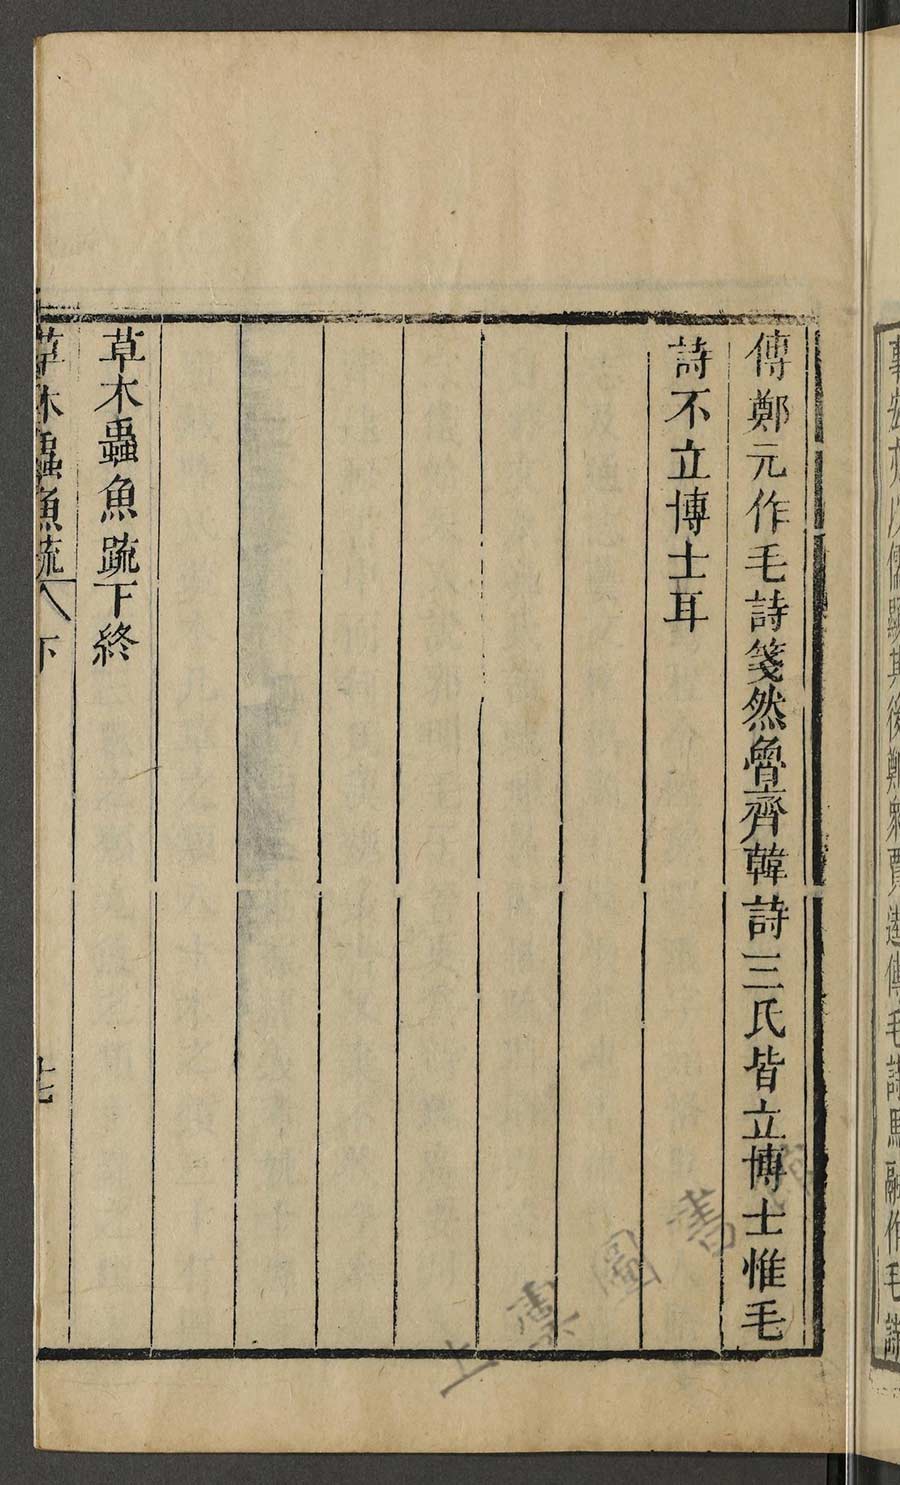 亦以儒顯其後鄭眾賈逵傳毛詩馬融作毛詩
傳鄭元作毛詩箋然魯齊韓詩三氏皆立博士惟毛
詩不立博士耳
草木蟲魚䟽下終
草木蟲魚䟽下
十七
上虞圖書